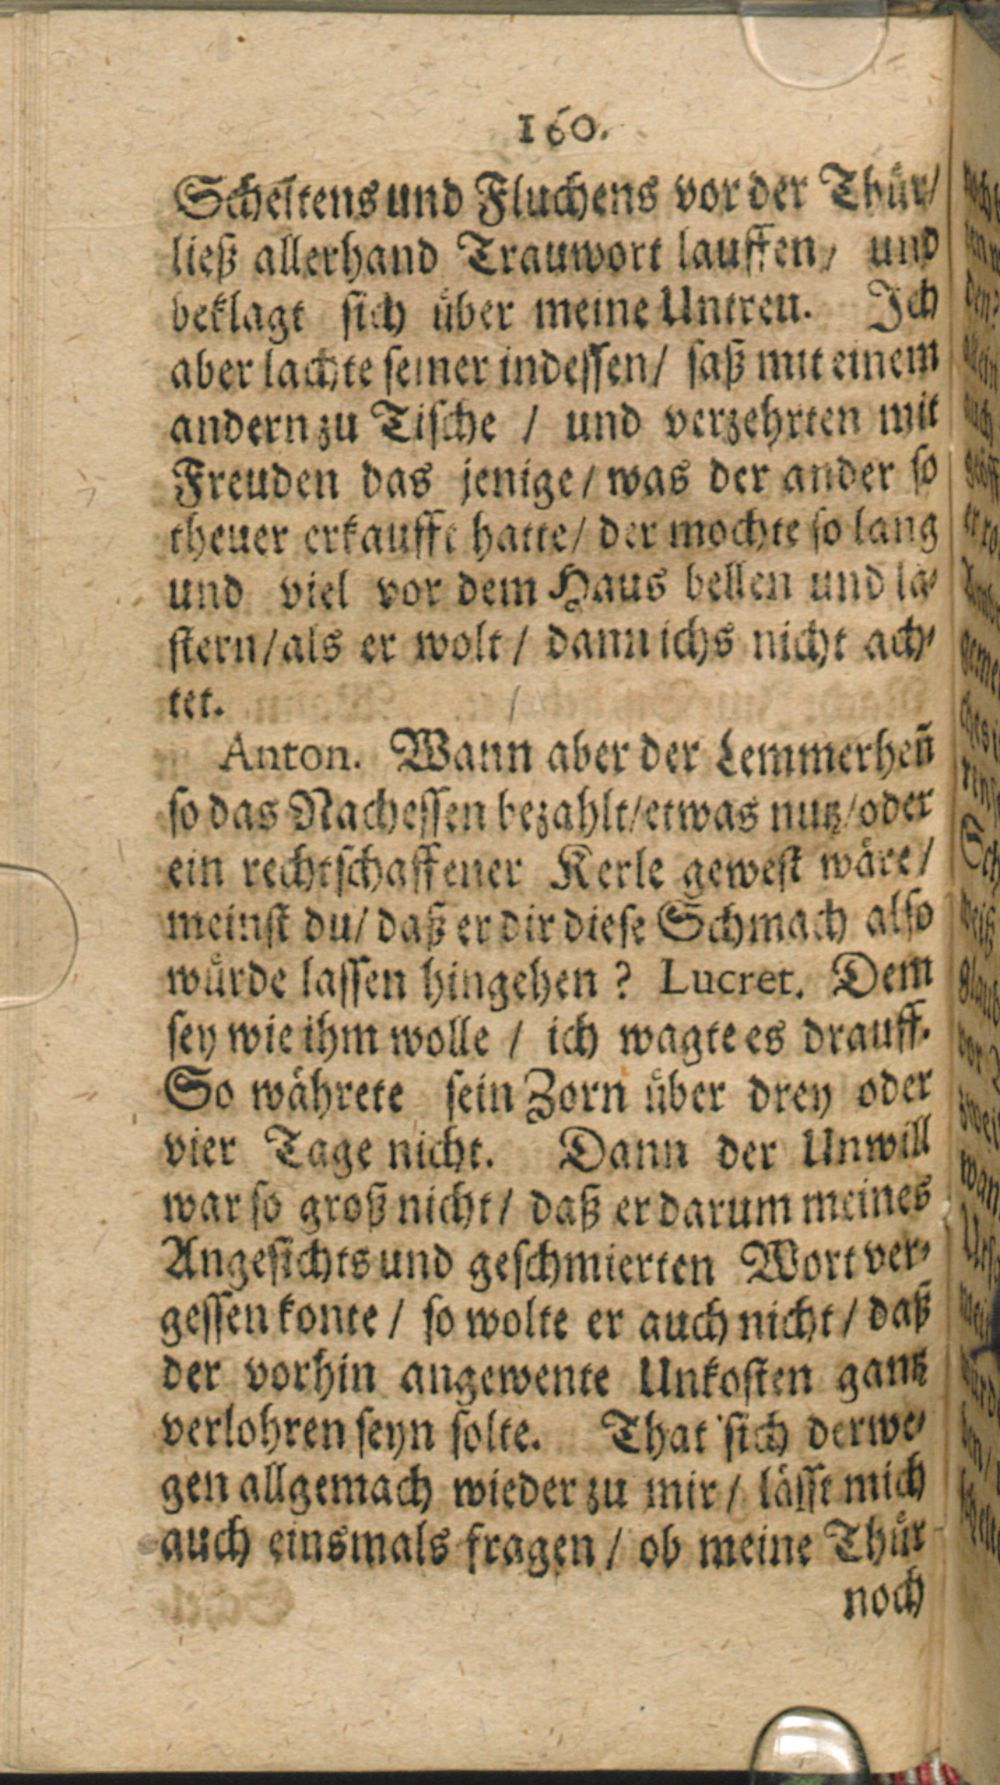 160.
Scheltens und Fluchens vor der Thür/
ließ allerhand Trauwort lauffen/ und
beklagt sich über meine Untreu. Ich
aber lachte seiner indessen/ saß mit einem
andern zu Tische / und verzehrten mit
Freuden das jenige/ was der ander so
theuer erkaufft hatte/ der mochte so lang
und viel vor dem Haus bellen und lä-
stern/ als er wolt / dann ichs nicht ach-
tet.
Anton. Wann aber der Lemmerheñ
so das Nachessen bezahlt/ etwas nutz/ oder
ein rechtschaffener Kerle gewest wäre/
meinst du/ daß er dir diese Schmach also
würde lassen hingehen? Lucret. Dem
sey wie ihm wolle / ich wagte es drauff.
So währete sein Zorn über drey oder
vier Tage nicht. Dann der Unwill
war so groß nicht/ daß er darum meines
Angesichts und geschmierten Wort ver-
gessen konte / so wolte er auch nicht / daß
der vorhin angewente Unkosten gantz
verlohren seyn solte. That sich derwe-
gen allgemach wieder zu mir / lässt mich
auch einsmals fragen / ob meine Thür
noch